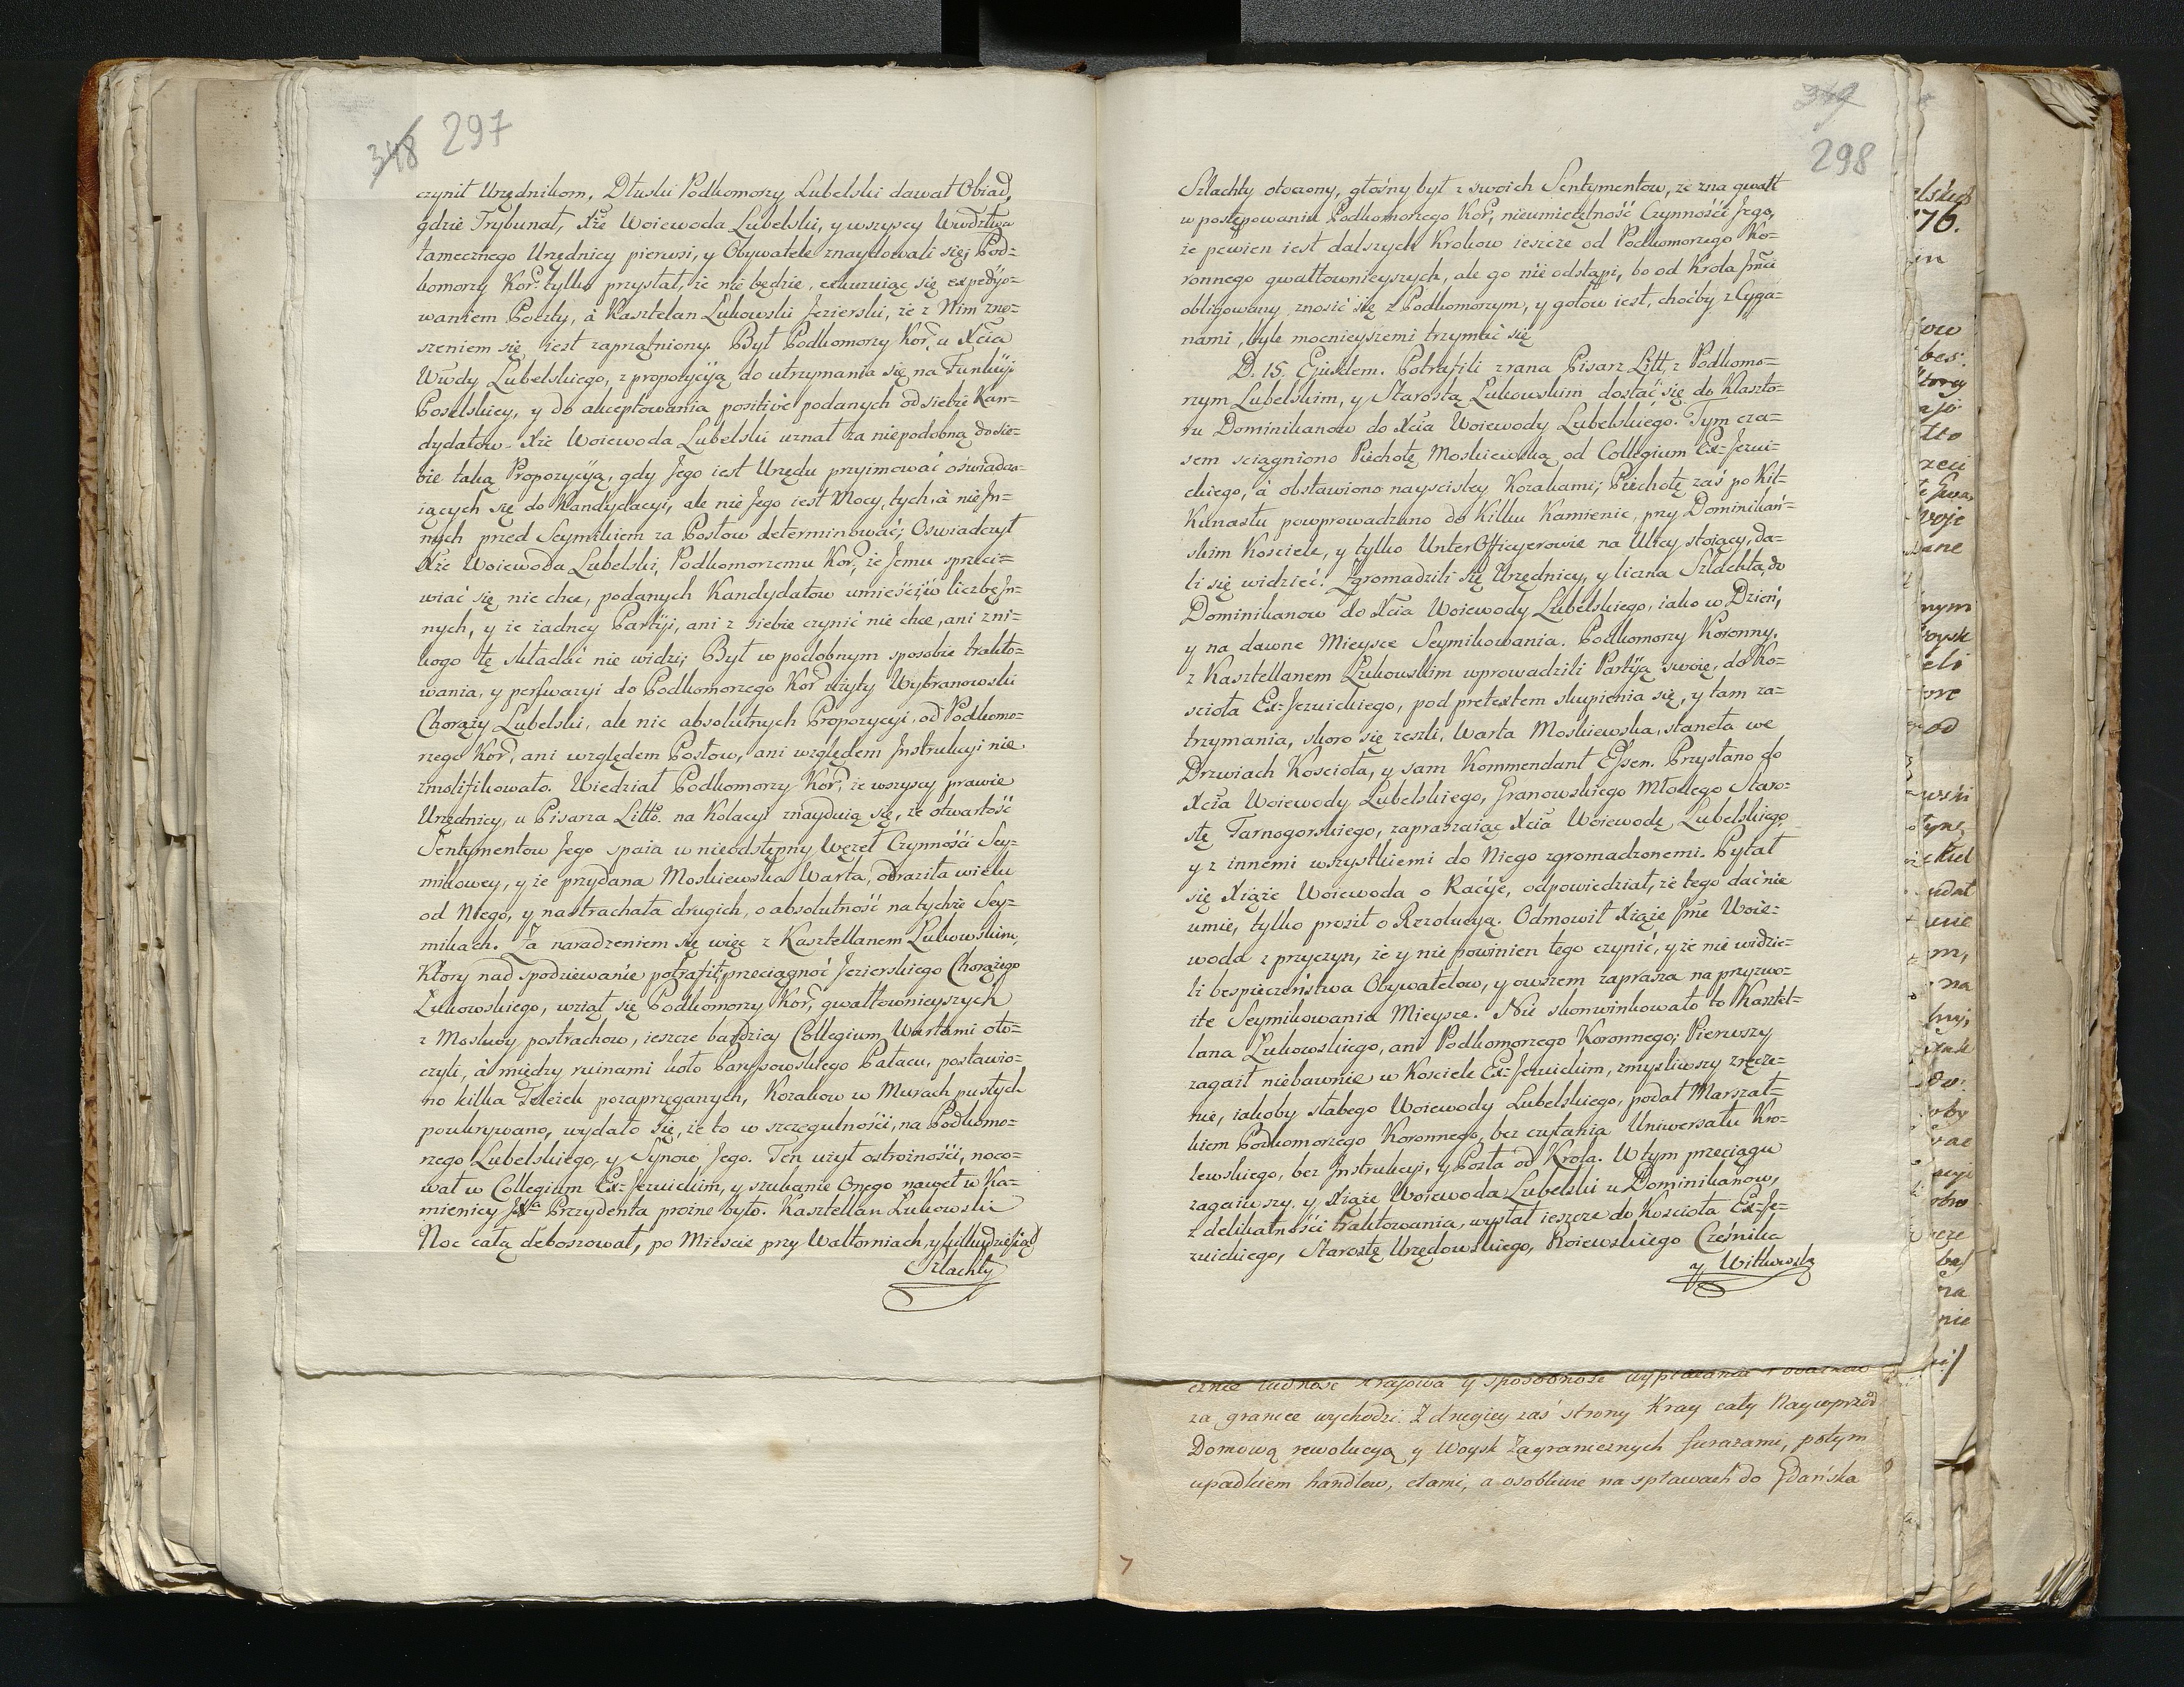 348 297
czynił Urzędnikom. Dłuski Podkomorzy Lubelski dawał Obiad,
gdzie Trybunał, Xże Woiewoda Lubelski, y wszyscy Wwdztwa
tamecznego Urzędnicy pierwsi, y Obywatele znaydowali się; Pod-
komorzy Kor: tylko przysłał, że nie będzie, exkuzuiąc się expedyo-
waniem Poczty, à Kasztelan Łukowski Jezierski, że z Nim zno-
szeniem się iest zaprzątniony. Był Podkomorzy Kor: u Xcia
Wwdy Lubelskiego, z propozycyą do utrzymania się na Funkcyi
Poselskiey, y do akceptowania positivè podanych od siebie Kan-
dydatow. Xże Woiewoda Lubelski uznał za niepodobną do sie-
bie taką Propozycyą, gdy Jego iest Urzędu przyimować oświadcza-
iących się do Kandydacyi, ale nie Jego iest Mocy, tych, à nie In-
nych przed Seymikiem za Posłow determinować; Oswiadczył
Xże Woiewoda Lubelski, Podkomorzemu Kor:, że Jemu sprzeci-
wiać się nie chce, podanych Kandydatow umieścił w liczbę In-
nych, y że żadney Partyi, ani z siebie czynić nie chce, ani z ni-
kogo tę składać nie widzi; Był w podobnym sposobie trakto-
wania, y perswazyi do Podkomorzego Kor użyty Wybranowski
Chorąży Lubelski, ale nic absolutnych Propozycyi, od Podkomo-
rzego Kor:, ani względem Posłow, ani względem Instrukcyi nie
zmolifikowało. Wiedział Podkomorzy Kor:, że wszyscy prawie
Urzędnicy, u Pisarza Litt:o na Kolacyi znayduią się, że otwartość
Sentymentow Jego spaia w nieodstępny Węzeł Czynności Sey-
mikowey, y że przydana Moskiewska Warta, obraziła wielu
od Niego, y nastrachała drugich, o absolutność na tychże Sey-
mikach. Za naradzeniem się więc z Kasztellanem Łukowskim,
Ktory nad spodziewanie potrafił przeciągnoć Jezierskiego Chorążego
Łukowskiego, wziął się Podkomorzy Kor:, gwałtownieyszych
z Moskwy postrachow, ieszcze bardziey Collegium Wartami oto-
czyli, à między ruinami koło Parysowskiego Pałacu, postawio-
no kilka Teleżek pozaprzęganych, Kozakow w Murach pustych
poukrywano, wydało się, że to w szczegulności, na Podkomo-
rzego Lubelskiego, y Synow Jego. Ten użył ostrożności, noco-
wał w Collegium Ex-Jezuickim, y szukanie Onego nawet w Ka-
mienicy JXa Prezydenta prożne było. Kasztellan Łukowski
Noc całą deboszował, po Mieście przy Waltorniach, y kilkudziesiąt
Szlachty
349
298
Szlachty otoczony, głośny był z swoich Sentymentow, że zna gwałt
w postępowaniu Podkomorzego Kor:, nieumieiętność Czynności Jego,
że pewien iest dalszych Krokow ieszcze od Podkomorzego Ko-
ronnego gwałtownieyszych, ale go nie odstąpi, bo od Krola Jmci
obligowany znosić się z Podkomorzym, y gotow iest, choćby z Cyga-
nami, byle mocnieyszemi trzymać się
D. 15. Ejusdem. Potrafili z rana Pisarz Litt, z Podkomo-
rzym Lubelskim, y Starostą Łukowskim dostać się do Klaszto-
ru Dominikanow do Xcia Woiewody Lubelskiego. Tym cza-
sem sciągniono Piechotę Moskiewską od Collegium Ex-Jezui-
ckiego, à obstawiono nayscisley Kozakami; Piechotę zaś po Kil-
Kunastu powprowadzano do Kilku Kamienic, przy Dominikań-
skim Kosciele, y tylko Unter Officyerowie na Ulicy stoiący, da-
li się widzieć. Zgromadzili się Urzędnicy, y liczna Szlachta, do
Dominikanow do Xcia Woiewody Lubelskiego, iako w Dzień,
y na dawne Mieysce Seymikowania. Podkomorzy Koronny,
z Kasztellanem Łukowskim wprowadzili Partyą swoię, do Ko-
scioła Ex-Jezuickiego, pod pretextem skupienia się, y tam za-
trzymania, skoro się zeszli, Warta Moskiewska, staneła we
Drzwiach Koscioła, y sam Kommendant Essen. Przysłano do
Xcia Woiewody Lubelskiego, Granowskiego Młodego Staro-
stę Tarnogorskiego, zapraszaiąc Xcia Woiewodę Lubelskiego
y z innemi wszystkiemi do Niego zgromadzonemi. Pytał
się Xiąże Woiewoda o Racye, odpowiedział, że tego dać nie
umie, tylko prosił o Rezolucyą. Odmowił Xiąże Jmć Woie-
woda z przyczyn, że y nie powinien tego czynić, y że nie widzie-
li bespieczeństwa Obywatelow, y owszem zaprasza na przyzwo-
ite Seymikowania Mieysce. Nie skonwinkowało to Kasztel-
lana Łukowskiego, ani Podkomorzego Koronnego; Pierwszy
zagaił niebawnie w Kosciele Ex-Jezuickim, zmysliwszy zręcz-
nie, iakoby słabego Woiewody Lubelskiego, podał Marszał-
kiem Podkomorzego Koronnego, bez czytania Uniwersału Kro-
lewskiego, bez Instrukcyi, y Posła od Krola. W tym przeciągu
zagaiwszy, y Xiąże Woiewoda Lubelski u Dominikanow,
z delikatności traktowania, wysłał ieszcze do Kościoła Ex-Je-
zuickiego, Starostę Urzędowskiego, Roiewskiego Cześnika
y Witkowsk
za granice wychodzi. Z drugiey zaś strony Kray cały Naywprzód
Domową rewolucyą y Woysk Zagranicznych furażami, potym
upadkiem handlow, cłami, a osobliwie na spławach do Gdańska